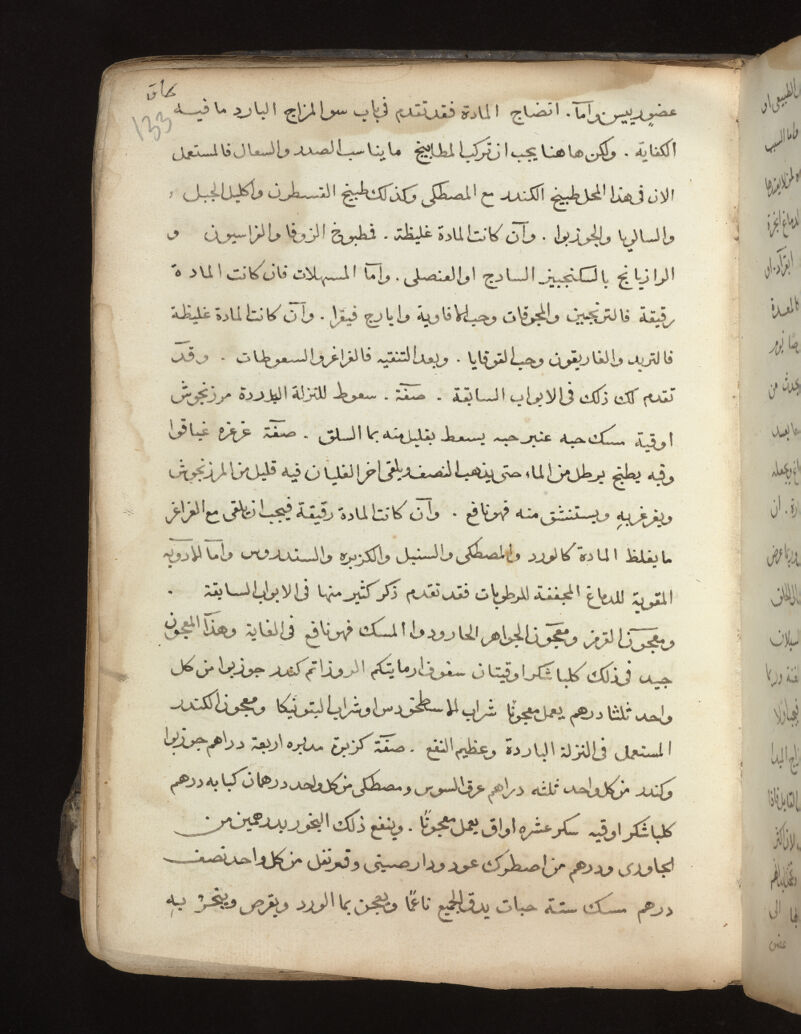 133
عضو رييس وآما . انضاج المادة فقد تقدم في باب سو المزاج البارد ما فيه
الكفاية . ولكن هاهنا يجب ان تركب المطابيخ ما يناسب الصدر والسعال فالمستعمل
الان في هذا المحل طبيخ الكندر مع المصطكي وكذلك طبيخ القسطرن واكليل الجبل
والسالبيا والجوزبوا . وآن كانت المادة غليظة . فطبوخ الزوفا والفراسيون و
الرازيانج بالسكنجبين السادج او العنصلي . وآما المسهلات فان كانت المادة
رقيقة فالترنجبين والمجوقات وحب الافاوية وايارج فيقرا . وآن كانت المادة غليظة
فالتربد والغاريقون وحب القوقايا . وبعد التنقيه فالغراغر والسعوطات . وقد
تقدم لك ذلك في الابواب السابقة . صفة . سعوط للنزلة الباردة مرزنجوش
اوقية مسك حبه عنبر حبه يسعط بقليل منه بما السلق . صفة غرغره غياقوا
وقيه يطبخ برطل من الماء حتى يذهب النصف ويلقى اخر الغليان فيه قليل من المرزنجوش
ويغرغر به ويستنشق منه فهو نافع . وآن كانت المادة رقيقة فيجب ان يلقى مع الغراغر
ما يغلظ المادة كالورد والمصطكي والسنبل والكزبره والسندروس وآما الادوية
المقوية للدماغ المجففة للرطوبات فقد تقدم ذكر كثير منها في الابواب السابقة .
ومعجون القرمز ومعجون الجواهر الحار ودوا المسك فهو نافع في الغاية وهذا المعجون
جيد في ذلك كلباشكر اوقيتان سفوف ارماتيكم الروزاتم كندر جوزبوا من كل
واحد ثلثا درهم يعمل معجونا شراب الاسطخودس او شراب البتونيكا ومعجون الكندر
المستعمل في النزلة الباردة وعظيم النفع . صفة كزبرة مدبره اربعة دراهم جوزبوا
وكندر من كل واحد ثلثه دراهم عرق السوس ومصطكي من كل واحد درهمان كبابه درهم
كلباشكر اوقيه سكر عشره اواق يعمل معجونا . وينفع ذلك البخور بدرهمين من
الجاوري ودرهم من اصطرك عود ودارصيني وقرنفل من كل واحد نصف
درهم مسك ستة حبات يدق الجميع ناعما ويعجن بما الورد ويقرص ويبخر به